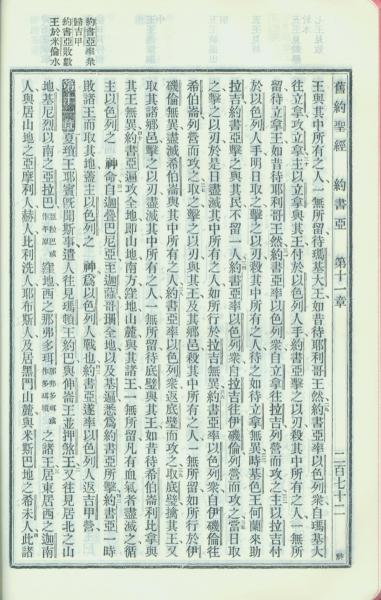 舊約聖經 約書亞 第十一章 二百七十二
王與其中所有之人一無所留待瑪基大王如昔待耶利哥王然約書亞率以色列衆自瑪基大
往立拿攻立拿主以立拿與其王付於以色列人手約書亞擊之以刃殺其中所有之人一無所
留待立拿王如昔待耶利哥王然約書亞率以色列衆自立拿往拉吉列營而攻之主以拉吉付
於以色列人手明日取之擊之以刃殺其中所有之人待之如待立拿無異時基色王何蘭來助
拉吉約書亞擊之與其民不留一人約書亞率以色列衆自拉吉往伊磯倫列營而攻之當日取
之擊之以刃於是日盡滅其中所有之人如所行於拉吉無異約書亞率以色列衆自伊磯倫往
希伯崙列營而攻之取之擊之以刃與其王及其鄉邑殺其中所有之人一無所留如所行於伊
磯倫無異盡滅希伯崙與其中所有之人約書亞率以色列衆返底璧而攻之取底璧擒其王又
取其諸鄉邑擊之以刃盡滅其中所有之人一無所留待底璧與其王如昔待希伯崙利比拿與
其王無異約書亞遍攻全地即山地南方窪地山麓與其諸王一無所留凡有血氣者盡滅之循
主以色列之 神命自迦疊巴尼亞至迦薩哥珊全地以及基遍悉爲約書亞所擊約書亞一時
敗諸王而取其地蓋主以色列之 神爲以色列人戰也約書亞遂率以色列人返吉甲營
第十一章 夏瑣王耶賓旣聞斯事遣人往見瑪頓王約巴與伸崙王並押煞王又往見居北之山
地基尼烈以南之亞拉巴 窪地西之那弗多珥 之諸王居東居西之迦南
人與居山地之亞摩利人赫人比利洗人耶布斯人及居黑門山麓與米斯巴地之希未人此諸
約書亞率衆
歸吉甲
約書亞敗數
王於米倫水